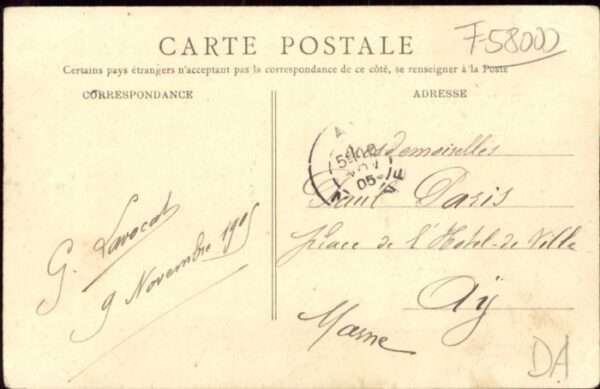 CARTE POSTALE
F-58000
Certains pays étrangers n'acceptant pas la correspondance de ce côté, se renseigner à la Poste
CORRESPONDANCE
ADRESSE
Mesdemoiselles
Paul Paris
place de l'Hotel-de Ville
Aÿ
Marne
G. Lavocat
9 Novembre 1905
DA